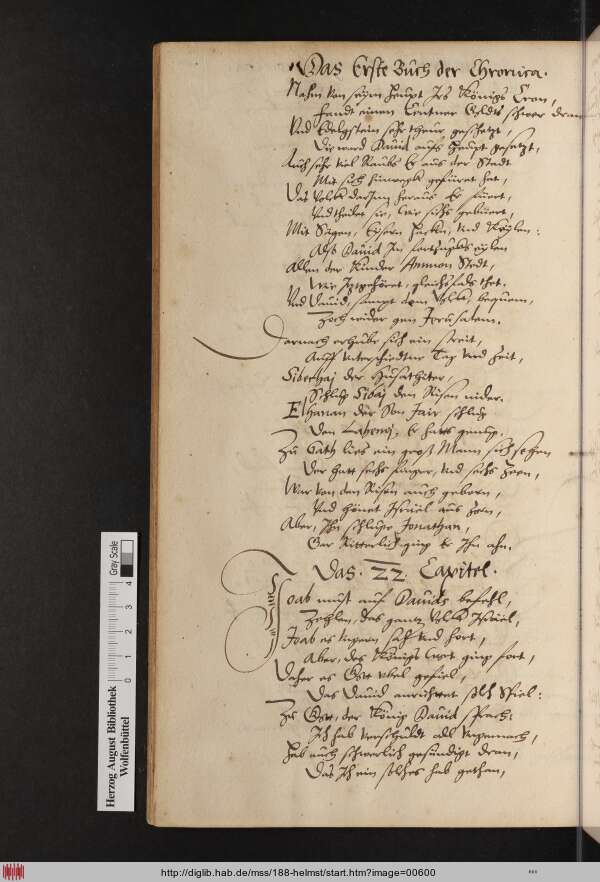 Das Erste Buch der Chronica.
Nahm von seym Heupt Irs Königs Cron,
Fandt einen Centner Goldts schwer dran
Vnd Edelgstein sehr theur geschetzt,
Die ward Dauid aufs Heupt gesetzt,
Auch sehr viel Raubs Er aus der Stadt
Mit sich hinwegk gefüret hat,
Das Volck darinn heraus Er fuert,
Vnd theilet sie, wie sichs gebuert,
Mit Sägen, Eysern Hacken, vnd Keylen:
Alss Dauid In
Allen der Kinder Ammon Stedt,
Wie Itzgehöret, gleichsfals thet.
Vnd Dauid, sampt dem Volck, bequem,
Zoch wider gen Jerusalem.
Darnach erhube sich ein streit,
Auff vnterschiedtner Tag vnd Zeit,
Sibechaj der Husathiter,
Schlug Sibaj den Risen nider.
Elhanan der Son Jair schlug
Den Lahemj, Er hatts genug,
Zu Gath lies ein gross Mann sich sehen
Der hatt sechs finger, vnd sechs Zeen,
War von den Risen auch geborn,
Vnd hönet Israel aus Zorn,
Aber, Ihn schluge Jonathan,
Gar Ritterlich ging Er Ihn ahn.
Das. 22. Capitel.
Joab must auf Dauids befehl,
Zehlen, das gantz Volck Israel,
Joab es vngern sah vnd hort,
Aber, des Königs Wort ging fort,
Daher es Gott vbel gefiel,
Das Dauid anrichtet solch Spiel:
Zu Gott, der König Dauid sprach:
Ich hab verschuldt als vngemach,
Hab auch schwerlich gesündigt dran,
Das Ich ein solches hab gethan,
Herzog August Bibliothek
Wolfenbüttel
Gray Scale
0 1 2 3 4
http://diglib.hab.de/mss/188-helmst/start.htm?image=00600